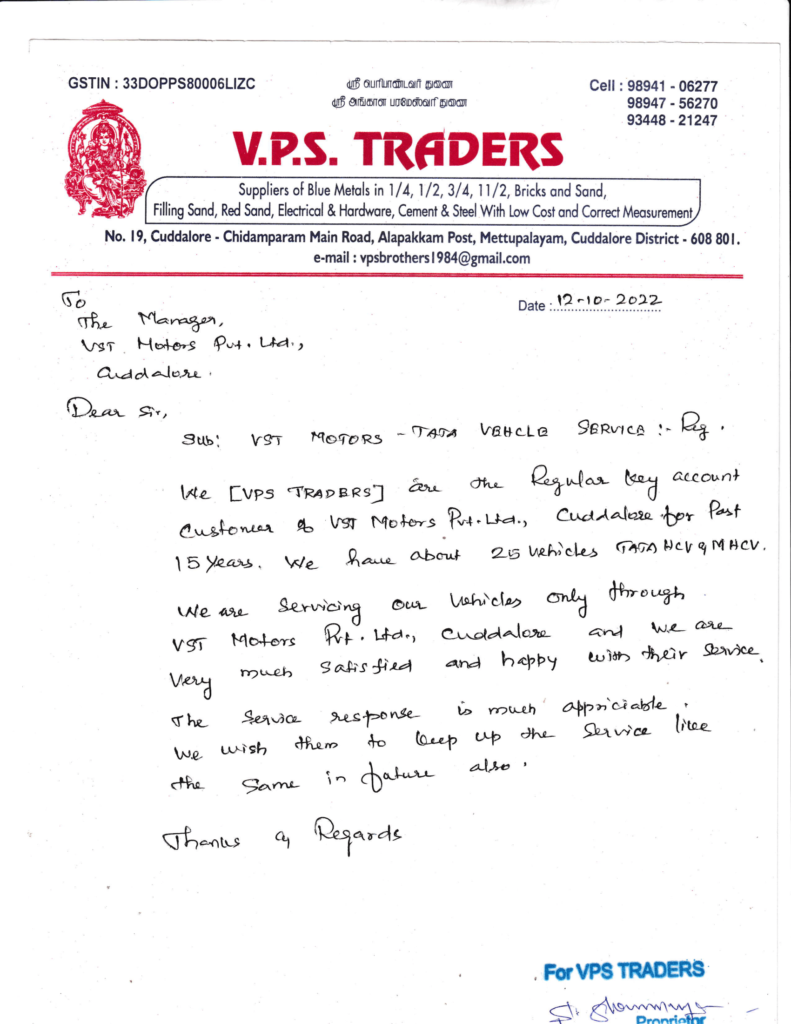 GSTIN : 33DOPPS80006LIZC
ஸ்ரீ பெரியாண்டவர் துணை
ஸ்ரீ அங்காள பரமேஸ்வரி துணை
Cell : 98941 - 06277
98947 - 56270
93448 - 21247
V.P.S. TRADERS
Suppliers of Blue Metals in 1/4, 1/2, 3/4, 11/2, Bricks and Sand,
Filling Sand, Red Sand, Electrical & Hardware, Cement & Steel With Low Cost and Correct Measurement
No. 19, Cuddalore - Chidamparam Main Road, Alapakkam Post, Mettupalayam, Cuddalore District - 608 801.
e-mail : vpsbrothers1984@gmail.com
Date : 12-10-2022
To
The Manager,
VST Motors Pvt. Ltd.,
Cuddalore.
Dear Sir,
Sub: VST MOTORS - TATA VEHCLE SERVICE :- Reg.
We [VPS TRADERS] are the Regular key account
Customer of VST Motors Pvt. Ltd., Cuddalore for Past
15 years. We have about 25 Vehicles TATA HCV & MHCV.
We are Servicing our Vehicles only through
VST Motors Pvt. Ltd., Cuddalore and we are
Very much Satisfied and happy with their Service.
The Service response is much appriciable.
We wish them to keep up the Service like
the Same in future also.
Thanks & Regards
For VPS TRADERS
Proprietor